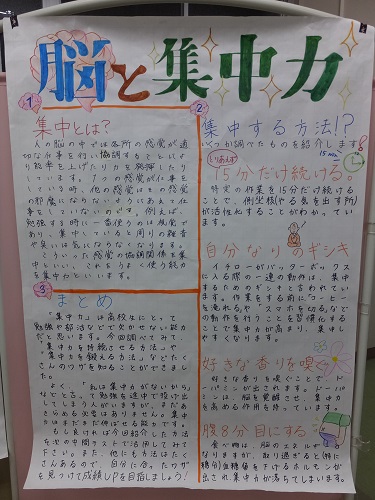 脳と集中力
1
集中とは?
人の脳の中では各所の感覚が適
切な仕事を行い協調することによ
り効率を上げたり力を発揮したり
しています。1つの感覚が仕事を
している時、他の感覚はその感覚
の邪魔にならないようにあえて仕
事をしていないのです。例えば、
勉強する時に一番使うのは視覚で
あり、集中していると周りの雑音
や臭いは気にならなくなります。
こういった感覚の協調関係を集
中といい、これをうまく使う能力
を集中力といいます。
2
集中する方法!?
いくつか調べたものを紹介します!
とりあえず
15min
15分だけ続ける。
特定の作業を15分だけ続ける
ことで、側坐核(やる気を出す所)
が活性化することがわかってい
ます。
自分なりのギシキ
イチローがバッターボックス
に入る際の一連の動作は、集中
するためのギシキと言われてい
ます。作業をする前にコーヒー
を淹れるや、スマホを切るなど
の動作を行うことを習慣化する
ことで集中力が高まり、集中し
やすくなります。
好きな香りを嗅ぐ
好きな香りを嗅ぐことで、ドー
パミンが出されます。ドーパミ
ンは、脳を覚醒させ、集中力
を高める作用を持っています。
腹8分目にする
食べ物は、脳のエネルギーに
なりますが、取り過ぎると(特に
糖分)血糖値を下げるホルモンが
出され集中力が落ちてしまいます。
3
まとめ
「集中力」は高校生にとって
勉強や部活などで欠かせない能力
だと思います。今回調べてみて
「集中力を持続させる方法」や
「集中力を鍛える方法」などたく
さんのワザを知ることができまし
た。
よく、「私は集中力がないから」
などと言って勉強を途中で投げ出
してしまう人がいますが、まだあ
きらめる必要はありません。集中
力はまだまだ伸ばせる能力です。
もし良ければ今回紹介した方法
を次の中間テストで活用してみて
下さい。また、他にも方法はたく
さんあるので、自分に合ったワザ
を見つけて成績UPを目指しましょう!